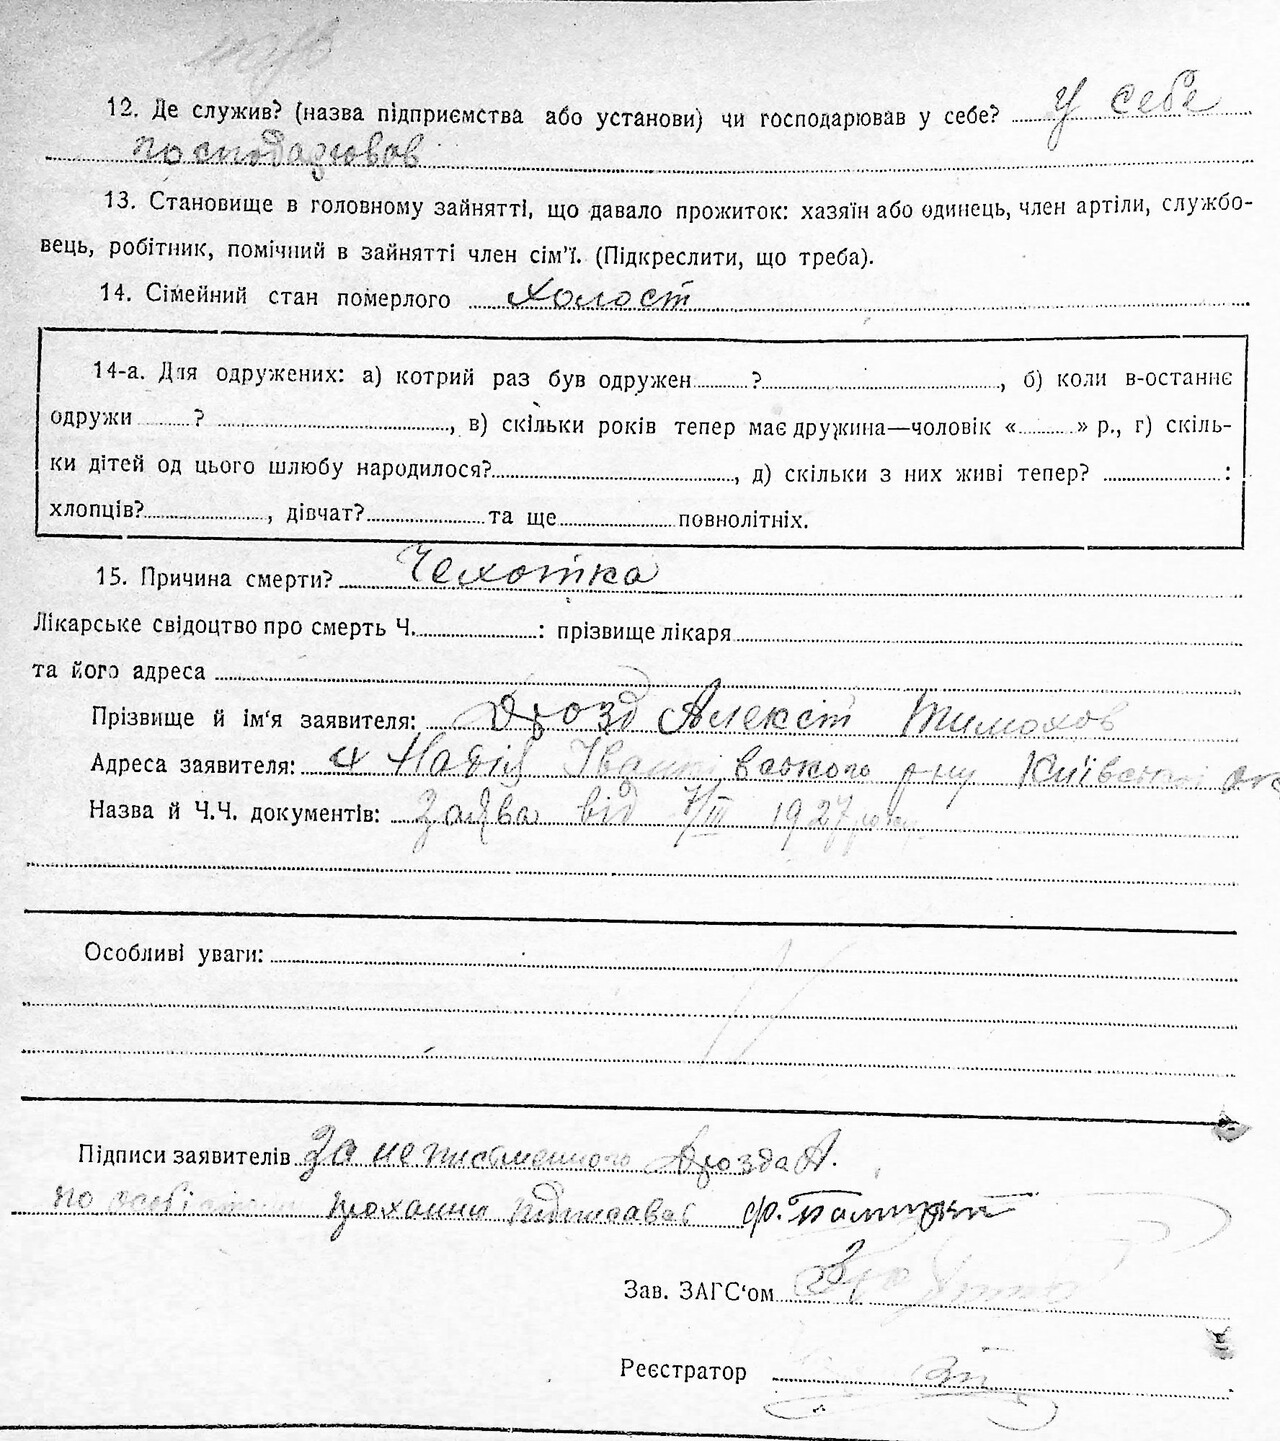 12. Де служив? (назва підприємства або установи) чи господарював у себе? у себе
господарював
13. Становище в головному зайнятті, що давало прожиток: хазяїн або одинець, член артіли, службо-
вець, робітник, помічний в зайнятті член сім'ї. (Підкреслити, що треба).
14. Сімейний стан померлого холост
14-а. Для одружених: а) котрий раз був одружен ? , б) коли в-останнє
одружи ? , в) скільки років тепер має дружина—чоловік « » р., г) скіль-
ки дітей од цього шлюбу народилося? , д) скільки з них живі тепер? :
хлопців? , дівчат? та ще повнолітніх.
15. Причина смерти? Чехотка
Лікарське свідоцтво про смерть Ч. : прізвище лікаря
та його адреса
Прізвище й ім'я заявителя: Дрозд Алексій Тимохов
Адреса заявителя: р-ну Київської
Назва й Ч.Ч. документів: Заява від 7/III 1927 року
Особливі уваги:
Підписи заявителів За неписьменного Дрозда А.
по прохання підписався Ф.
Зав. ЗАГС'ом
Реєстратор